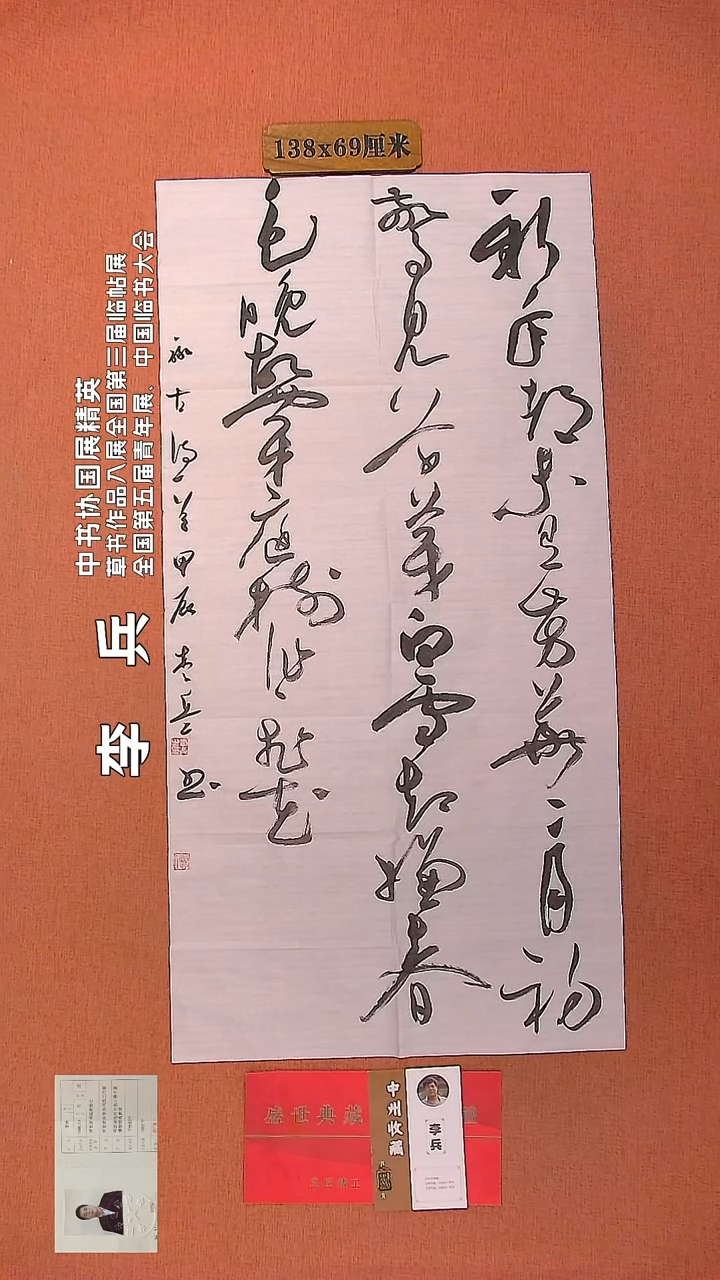 138x69厘米
新年都未有芳華二月初
驚見草芽白雪却嫌春
色晚故穿庭樹作飛花
录古诗一首甲辰李兵书
中书协国展精英
草书作品入展全国第三届临帖展
全国第五届青年展、中国临书大会
李 兵
盛世典藏
中州收藏
李兵